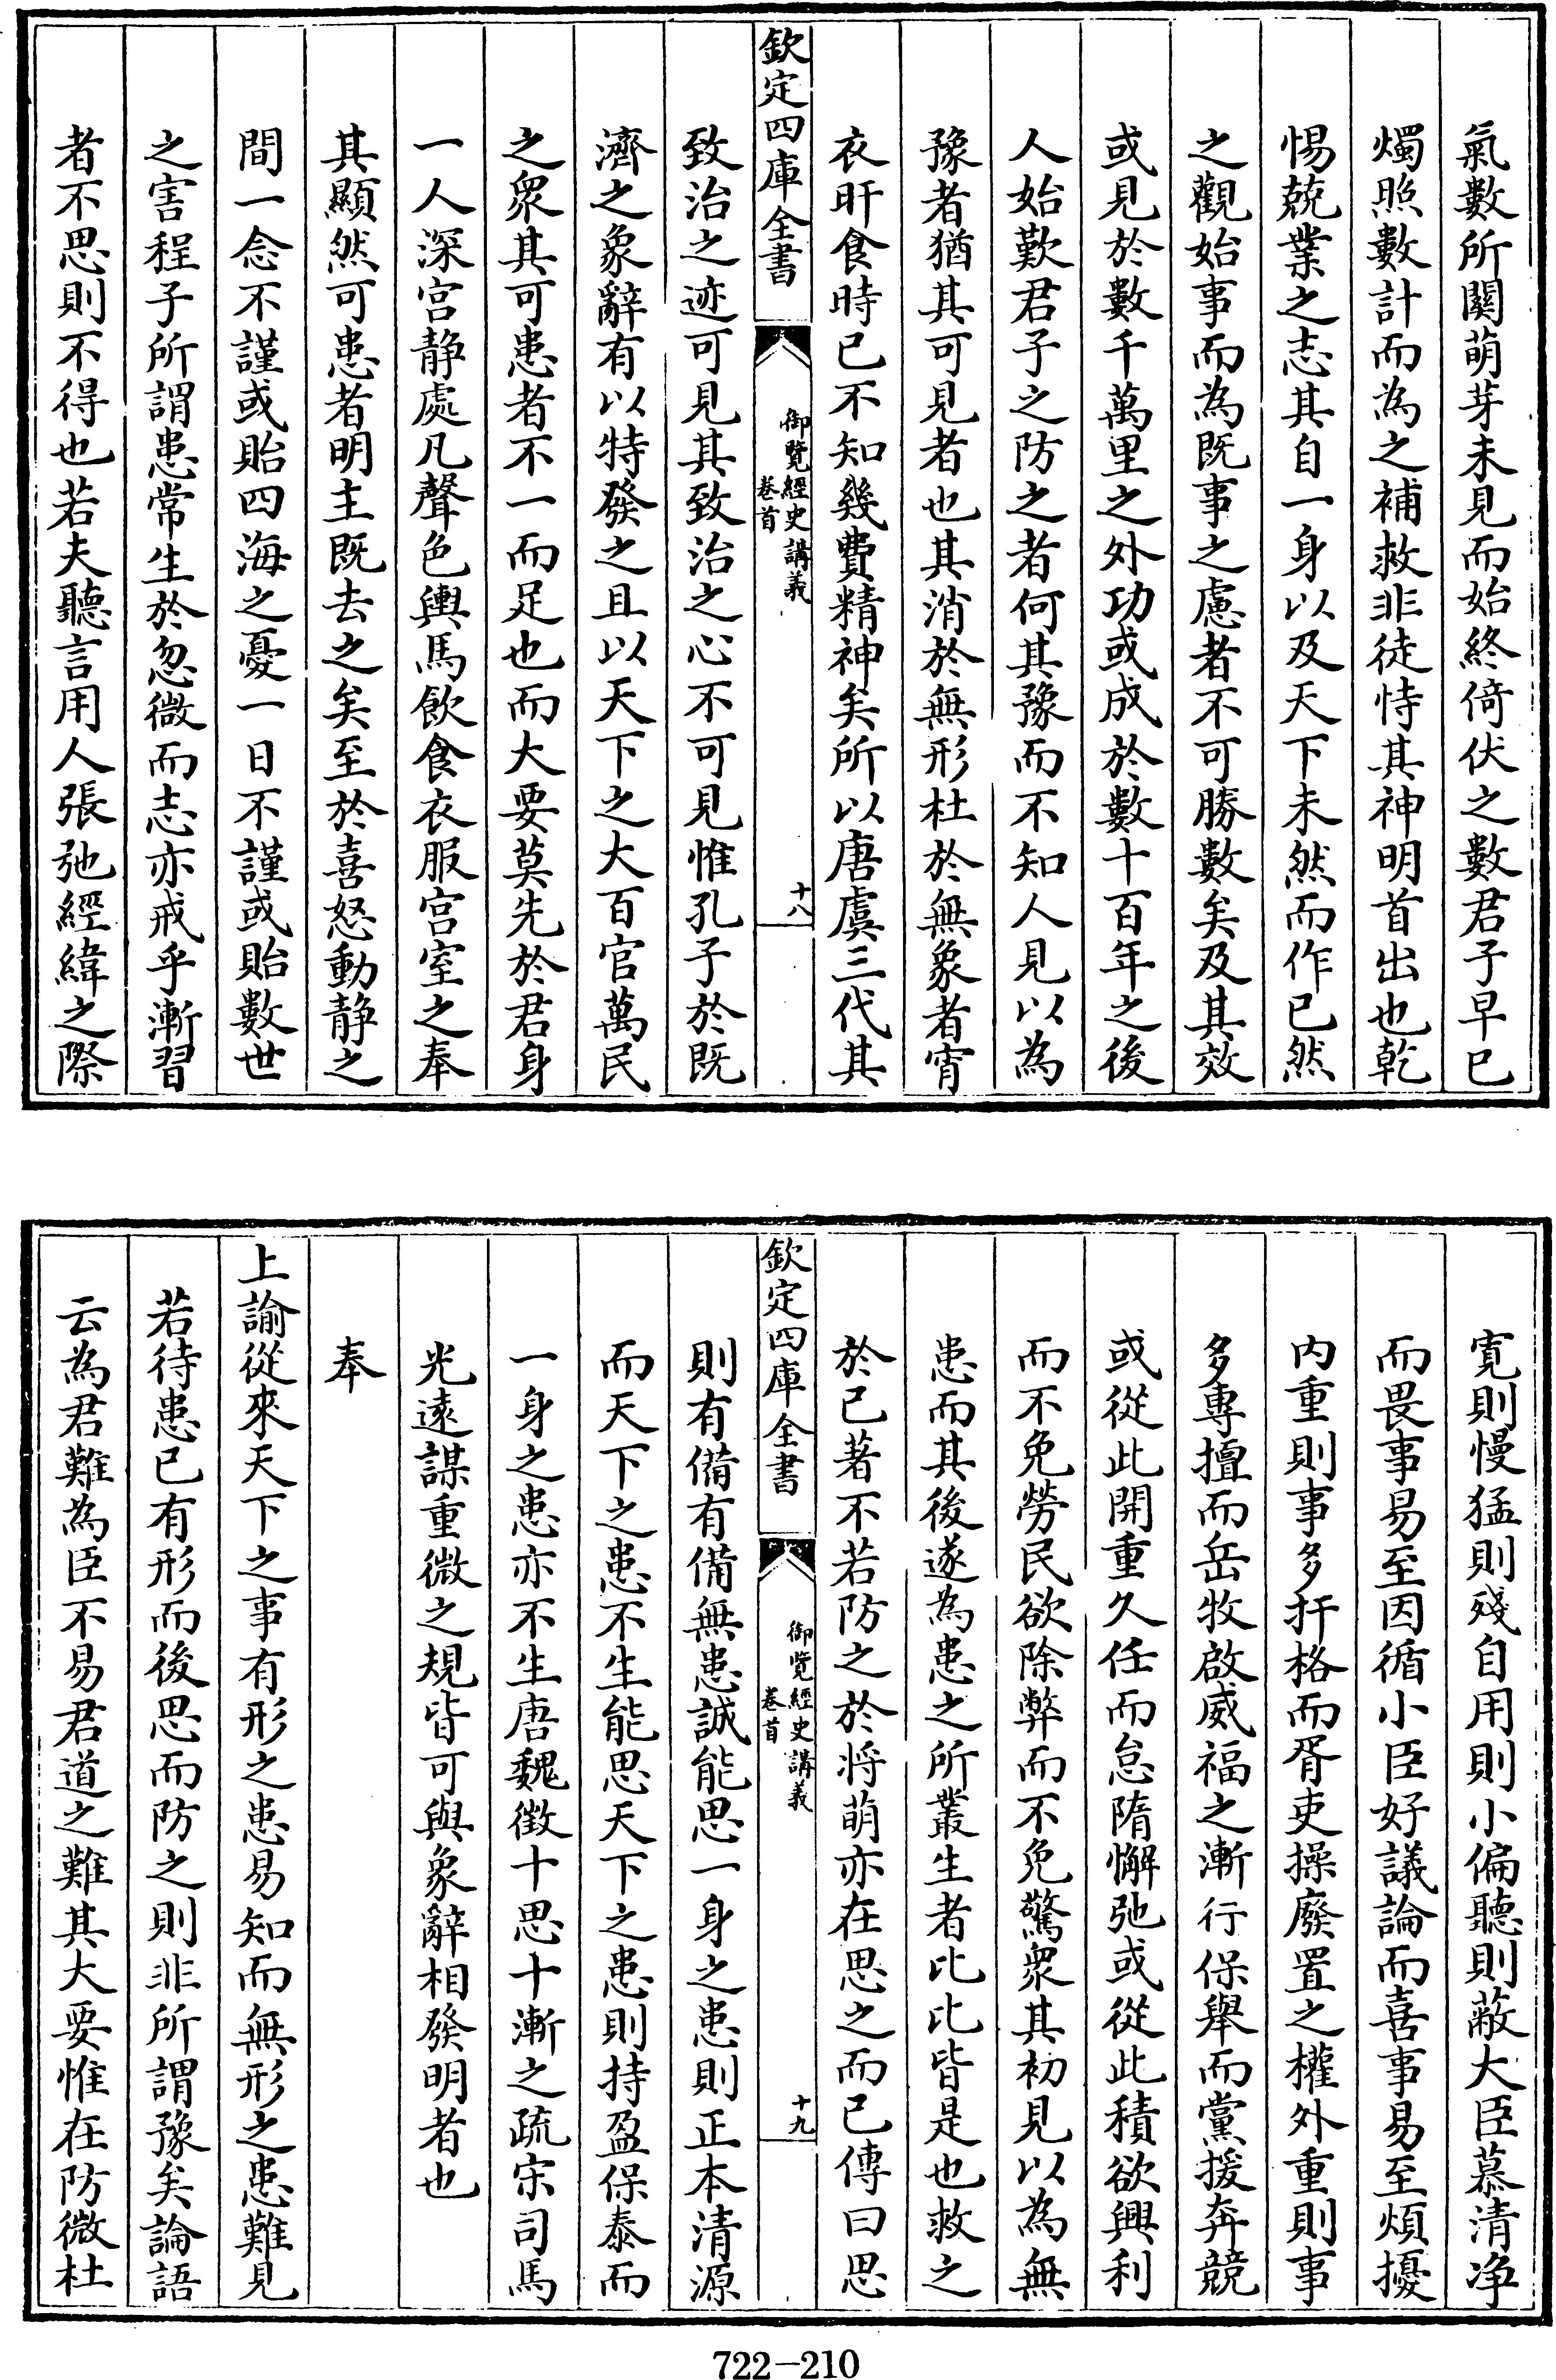 氣數所關萌芽未見而始終倚伏之數君子早已
燭照數計而為之補救非徒恃其神明首出也乾
惕兢業之志其自一身以及天下未然而作已然
之觀始事而為既事之慮者不可勝數矣及其效
或見於數千萬里之外功或成於數十百年之後
人始歎君子之防之者何其豫而不知人見以為
豫者猶其可見者也其消於無形杜於無象者宵
衣旰食時已不知幾費精神矣所以唐虞三代其
欽定四庫全書
御覽經史講義
卷首
十八
致治之迹可見其致治之心不可見惟孔子於既
濟之象辭有以特發之且以天下之大百官萬民
之眾其可患者不一而足也而大要莫先於君身
一人深宮靜處凡聲色輿馬飲食衣服宮室之奉
其顯然可患者明主既去之矣至於喜怒動靜之
間一念不謹或貽四海之憂一日不謹或貽數世
之害程子所謂患常生於忽微而志亦戒乎漸習
者不思則不得也若夫聽言用人張弛經緯之際
寛則慢猛則殘自用則小偏聽則蔽大臣慕清净
而畏事易至因循小臣好議論而喜事易至煩擾
内重則事多扞格而胥吏操廢置之權外重則事
多專擅而岳牧啟威福之漸行保舉而黨援奔競
或從此開重久任而怠隋懈弛或從此積欲興利
而不免勞民欲除弊而不免驚衆其初見以為無
患而其後遂為患之所叢生者比比皆是也救之
於已著不若防之於將萌亦在思之而已傳曰思
欽定四庫全書
御覽經史講義
卷首
十九
則有備有備無患誠能思一身之患則正本清源
而天下之患不生能思天下之患則持盈保泰而
一身之患亦不生唐魏徵十思十漸之疏宋司馬
光遠謀重微之規皆可與象辭相發明者也
奉
上諭從來天下之事有形之患易知而無形之患難見
若待患已有形而後思而防之則非所謂豫矣論語
云為君難為臣不易君道之難其大要惟在防微杜
722-210